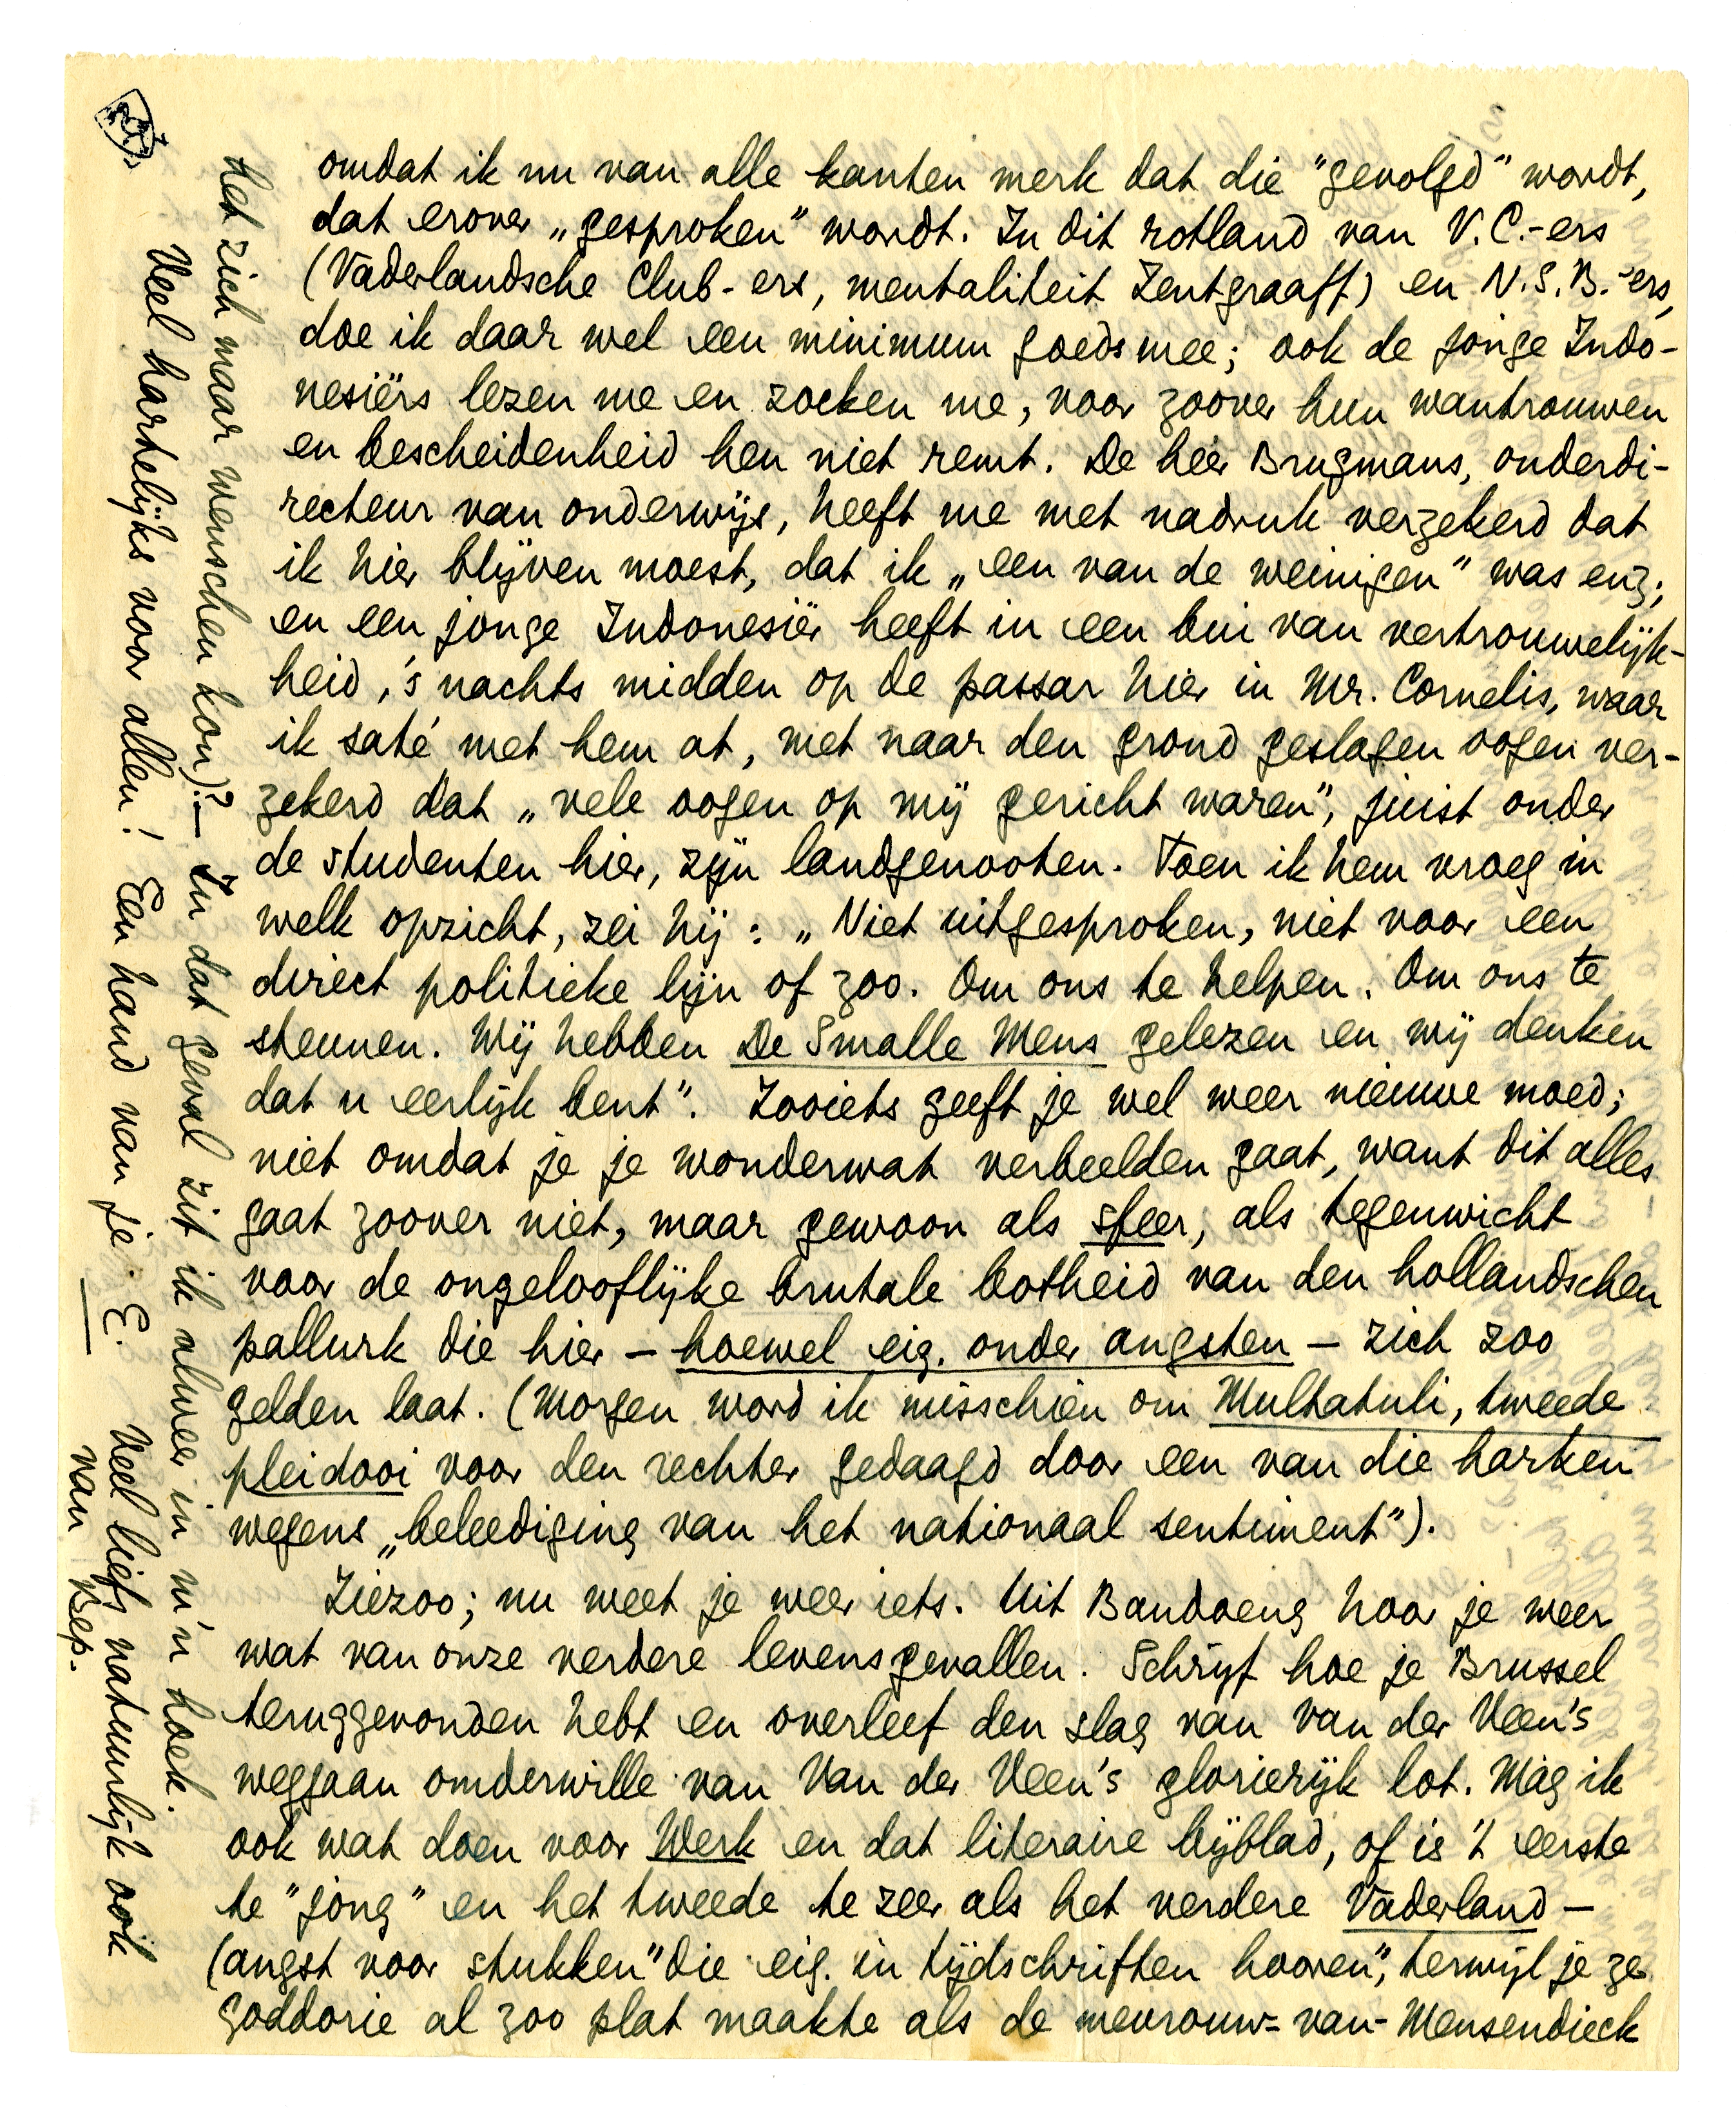 omdat ik nu van alle kanten merk dat die "gevolgd" wordt,
dat erover „gesproken" wordt. In dit rotland van V.C.-ers
(Vaderlandsche Club-ers, mentaliteit Zentgraaff) en N.S.B.-ers,
doe ik daar wel een minimum goeds mee; ook de jonge Indo-
nesiërs lezen me en zoeken me, voor zoover hun wantrouwen
en bescheidenheid hen niet remt. De heer Brugmans, onderdi-
recteur van onderwijs, heeft me met nadruk verzekerd dat
ik hier blijven moest, dat ik „een van de weinigen" was enz;
en een jonge Indonesiër heeft in een bui van vertrouwelijk-
heid, 's nachts midden op de passar hier in Mr. Cornelis, waar
ik saté met hem at, met naar den grond geslagen oogen ver-
zekerd dat „vele oogen op mij gericht waren", juist onder
de studenten hier, zijn landgenooten. Toen ik hem vroeg in
welk opzicht, zei hij: „Niet uitgesproken, niet voor een
direct politieke lijn of zoo. Om ons te helpen. Om ons te
steunen. Wij hebben De Smalle Mens gelezen en wij denken
dat u eerlijk bent". Zooiets geeft je wel weer nieuwe moed;
niet omdat je je wonderwat verbeelden gaat, want dit alles
gaat zoover niet, maar gewoon als sfeer, als tegenwicht
voor de ongelooflijke brutale botheid van den hollandschen
pallurk die hier – hoewel eig. onder angsten – zich zoo
gelden laat. (Morgen word ik misschien om Multatuli, tweede
pleidooi voor den rechter gedaagd door een van die harken
wegens „beleediging van het nationaal sentiment").
Ziezoo; nu weet je weer iets. Uit Bandoeng hoor je weer
wat van onze verdere levensgevallen. Schrijf hoe je Brussel
teruggevonden hebt en overleef den slag van Van der Veen's
weggaan omderwille van Van der Veen's glorierijk lot. Mag ik
ook wat doen voor Werk en dat literaire bijblad, of is 't eerste
te "jong" en het tweede te zeer als het verdere Vaderland –
(angst voor stukken "die eig. in tijdschriften hooren", terwijl je ze
goddorie al zoo plat maakte als de mevrouw-van-Mensendieck
het zich maar wenschen kon)? – In dat geval zit ik alweer in m'n hoek.
Veel hartelijks voor allen! Een hand van je E. Veel liefs natuurlijk ook
van Bep.